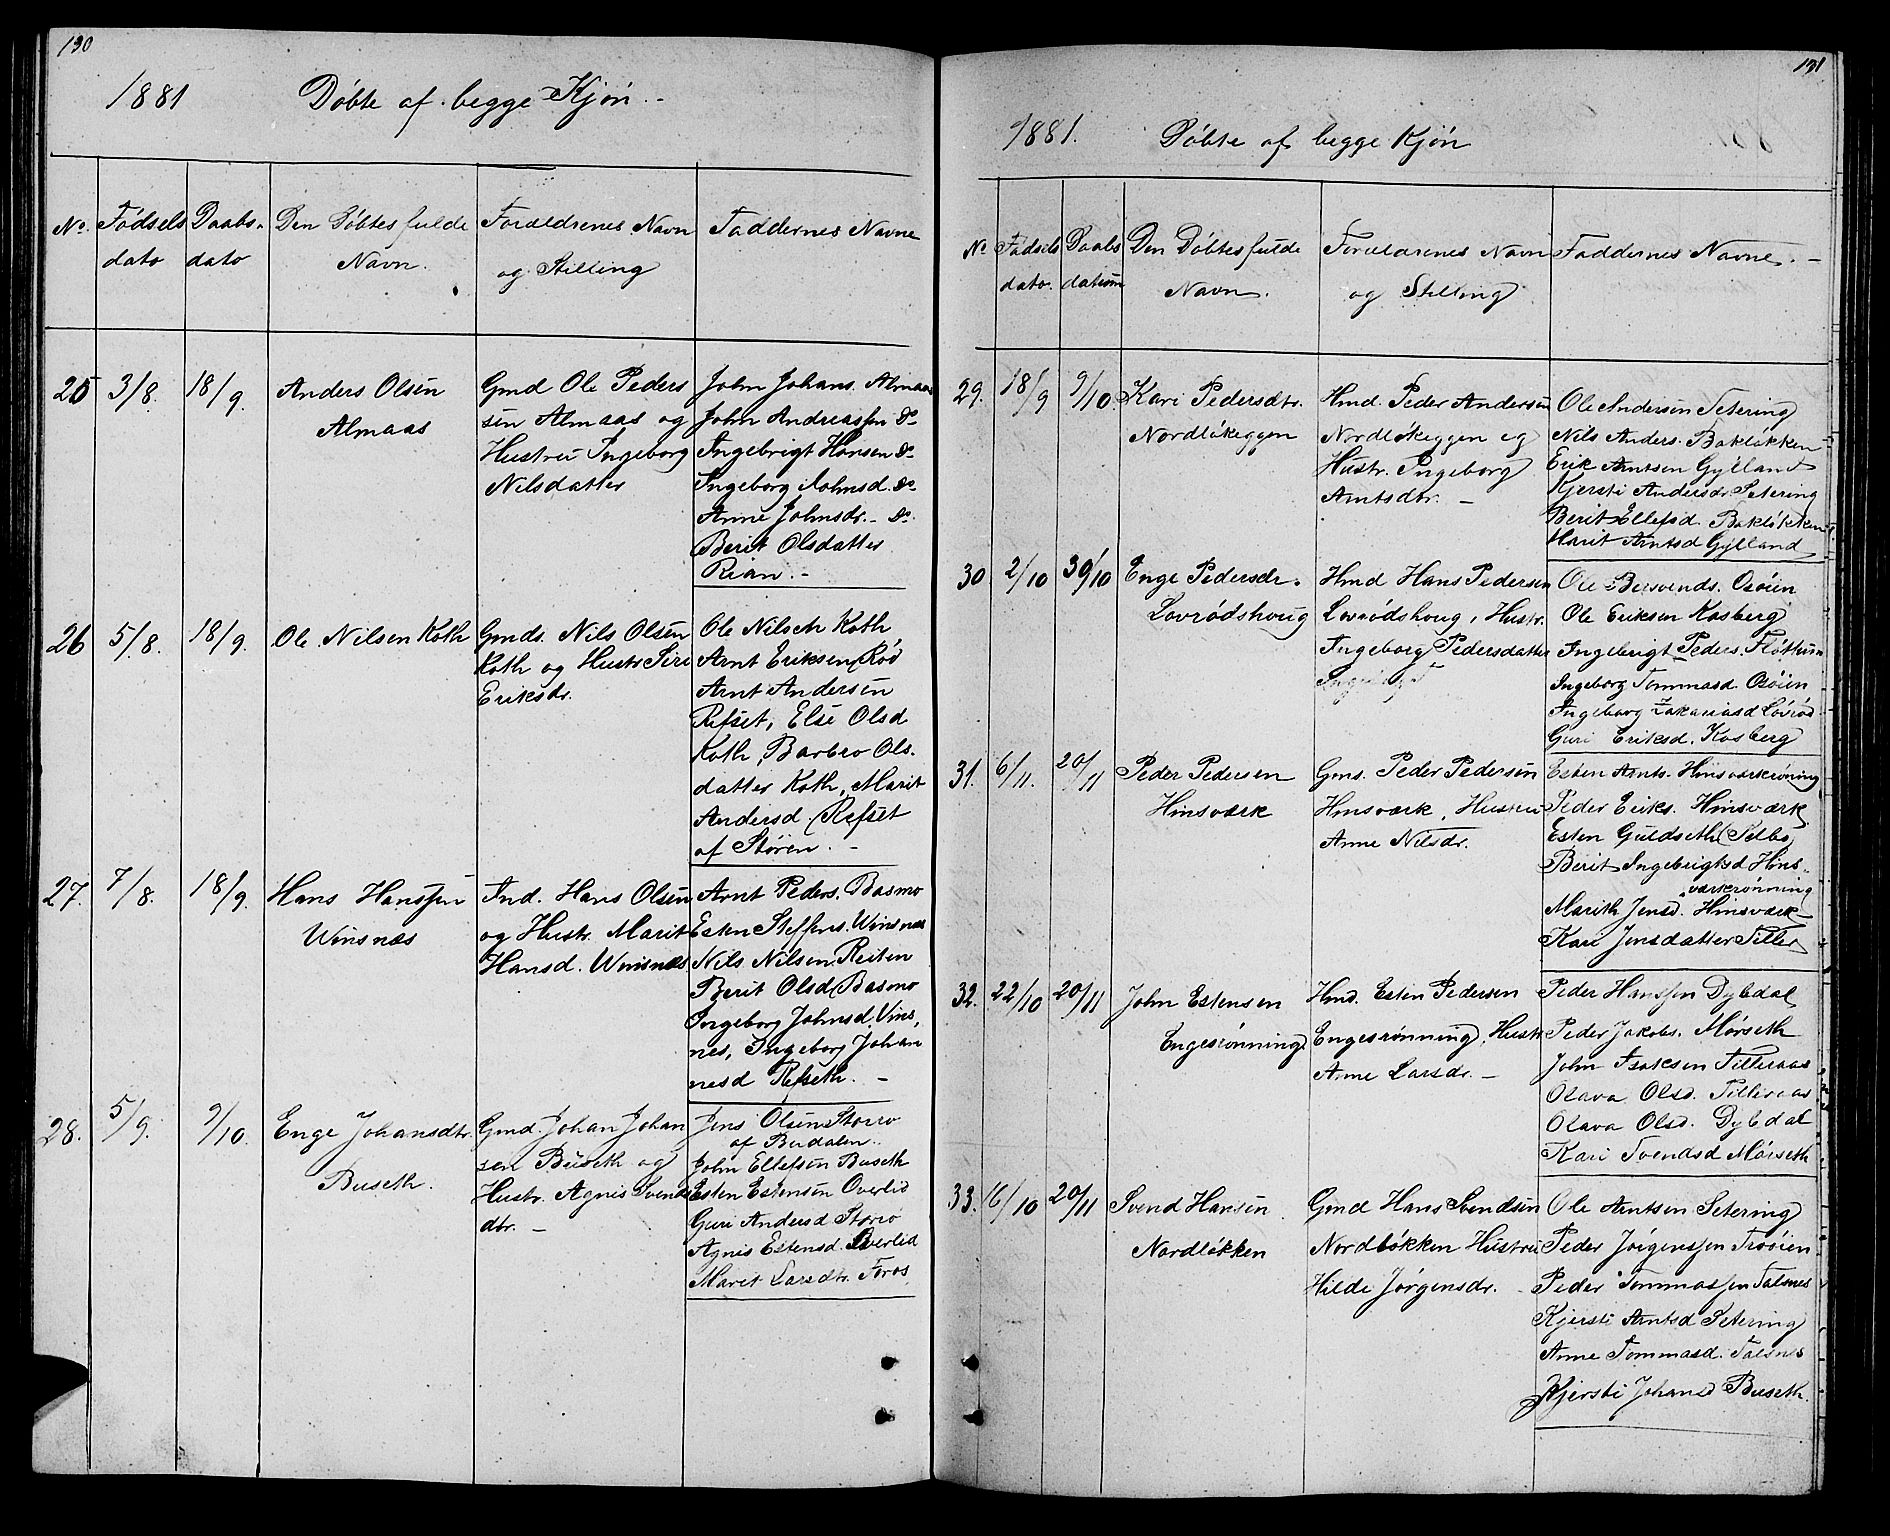 130
1881 Döbte af begge Kjön. -
No. Födsels Daabs- Den Döbtes fulde Foraldrenes Navn Faddernes Navne
dato dato Navn. og Stilling
25 3/8. 18/9. Anders Olsen Gmd Ole Peders John Johans. Almaas
Almaas sen Almaas og John Andreassen do
Hustru Ingeborg Ingebrigt Hansen do
Nilsdatter Ingeborg Johnsd. do
Anne Johnsdr. - do.
Berit Olsdatter
Rian. -
26 5/8. 18/9. Ole Nilsen Koth Gmds. Nils Olsen Ole Nilsen Koth,
Koth og Hustr Siri Arnt Eriksen Röd
Eriksdr. Arnt Andersen
Refset, Else Olsd
Koth, Barbro Ols-
datter Koth, Marit
Andersd. Refset
af Stören. -
27. 7/8. 18/9. Hans Hanssen Ind. Hans Olsen Arnt Peders. Basmo
Winsnæs og Hustr. Marit Esten Steffens. Winsnæs
Hansd. Winsnæs Nils Nilsen Reiten
Berit Olsd Basmo
Ingeborg Johnsd. Vins,
nes, Ingeborg Johan
nesd Refseth. -
28. 5/9. 9/10. Enge Johansdtr. Gmd. Johan Johan Jens Olsen Storro
af Budalen.
Buseth. sen Buseth og John Ellefsen Buseth
Hustr. Agnis Svends Esten Estensen Overlid
dtr. - Guri Andersd Storro
Agnis Estensd. Overlid
Marit Larsdtr. Foros
131
1881. Döbte af begge Kjön
No. Födsels Daabs Den Döbtes fulde Forældrenes Navn Faddernes Navne. -
dato. datum Navn. og Stilling
29. 18/9 9/10. Kari Pedersdtr. Hmd. Peder Andersen Ole Andersen Setering
Nordlökeggen Nordlökeggen og Nils Anders. Baklökken
Hustr. Ingeborg Erik Arntsen Gylland
Arntsdtr. - Kjersti Andersdr. Setering
Berit Ellefsd. Baklökken
Marit Arntsd Gylland
30 2/10 30/10 Enge Pedersdr. Hmd Hans Pedersen Ole Bersvends. Osöien
Lovrödshoug Lovrödshoug, Hustr. Ole Eriksen Kosberg
Ingeborg Pedersdatter Ingebrigt Peders. Flöttum
Ingeborg Tommasd. Osöien
Ingeborg Zakariasd Lövröd
Guri Eriksd. Kosberg
31. 6/11. 20/11 Peder Pedersen Gms. Peder Pedersen Esten Arnts. Hinsværkröning
Hinsværk Hinsværk, Hustru Peder Eriks. Hinsværk
Anne Nilsdr. Esten Guldseth Selbo
Berit Ingebrigtsd Hins-
værkrönning
Marith Jensd. Hinsværk
Kari Jensdatter Tiller
32. 22/10 20/11 John Estensen Hmd. Esten Pedersen Peder Hanssen Dybdal
Engesrönning. Engesrönning, Hustr Peder Jakobs. Mörseth
Anne Larsdr. - John Isaksen Tilleraas
Olava Olsd. Tilleraas
Olava Olsd. Dybdal
Kari Svendsd Mörseth
33. 16/10 20/11 Svend Hansen Gmd Hans Svendsen Ole Arntsen Setering
Nordlökken Nordlökken Hustru Peder Jörgenssen Troöien
Hilde Jörgensdr. Peder Tommassen Talsnes
Kjersti Arntsd Setering
Anne Tommasd. Talsnes
Kjersti Johansd Buseth.